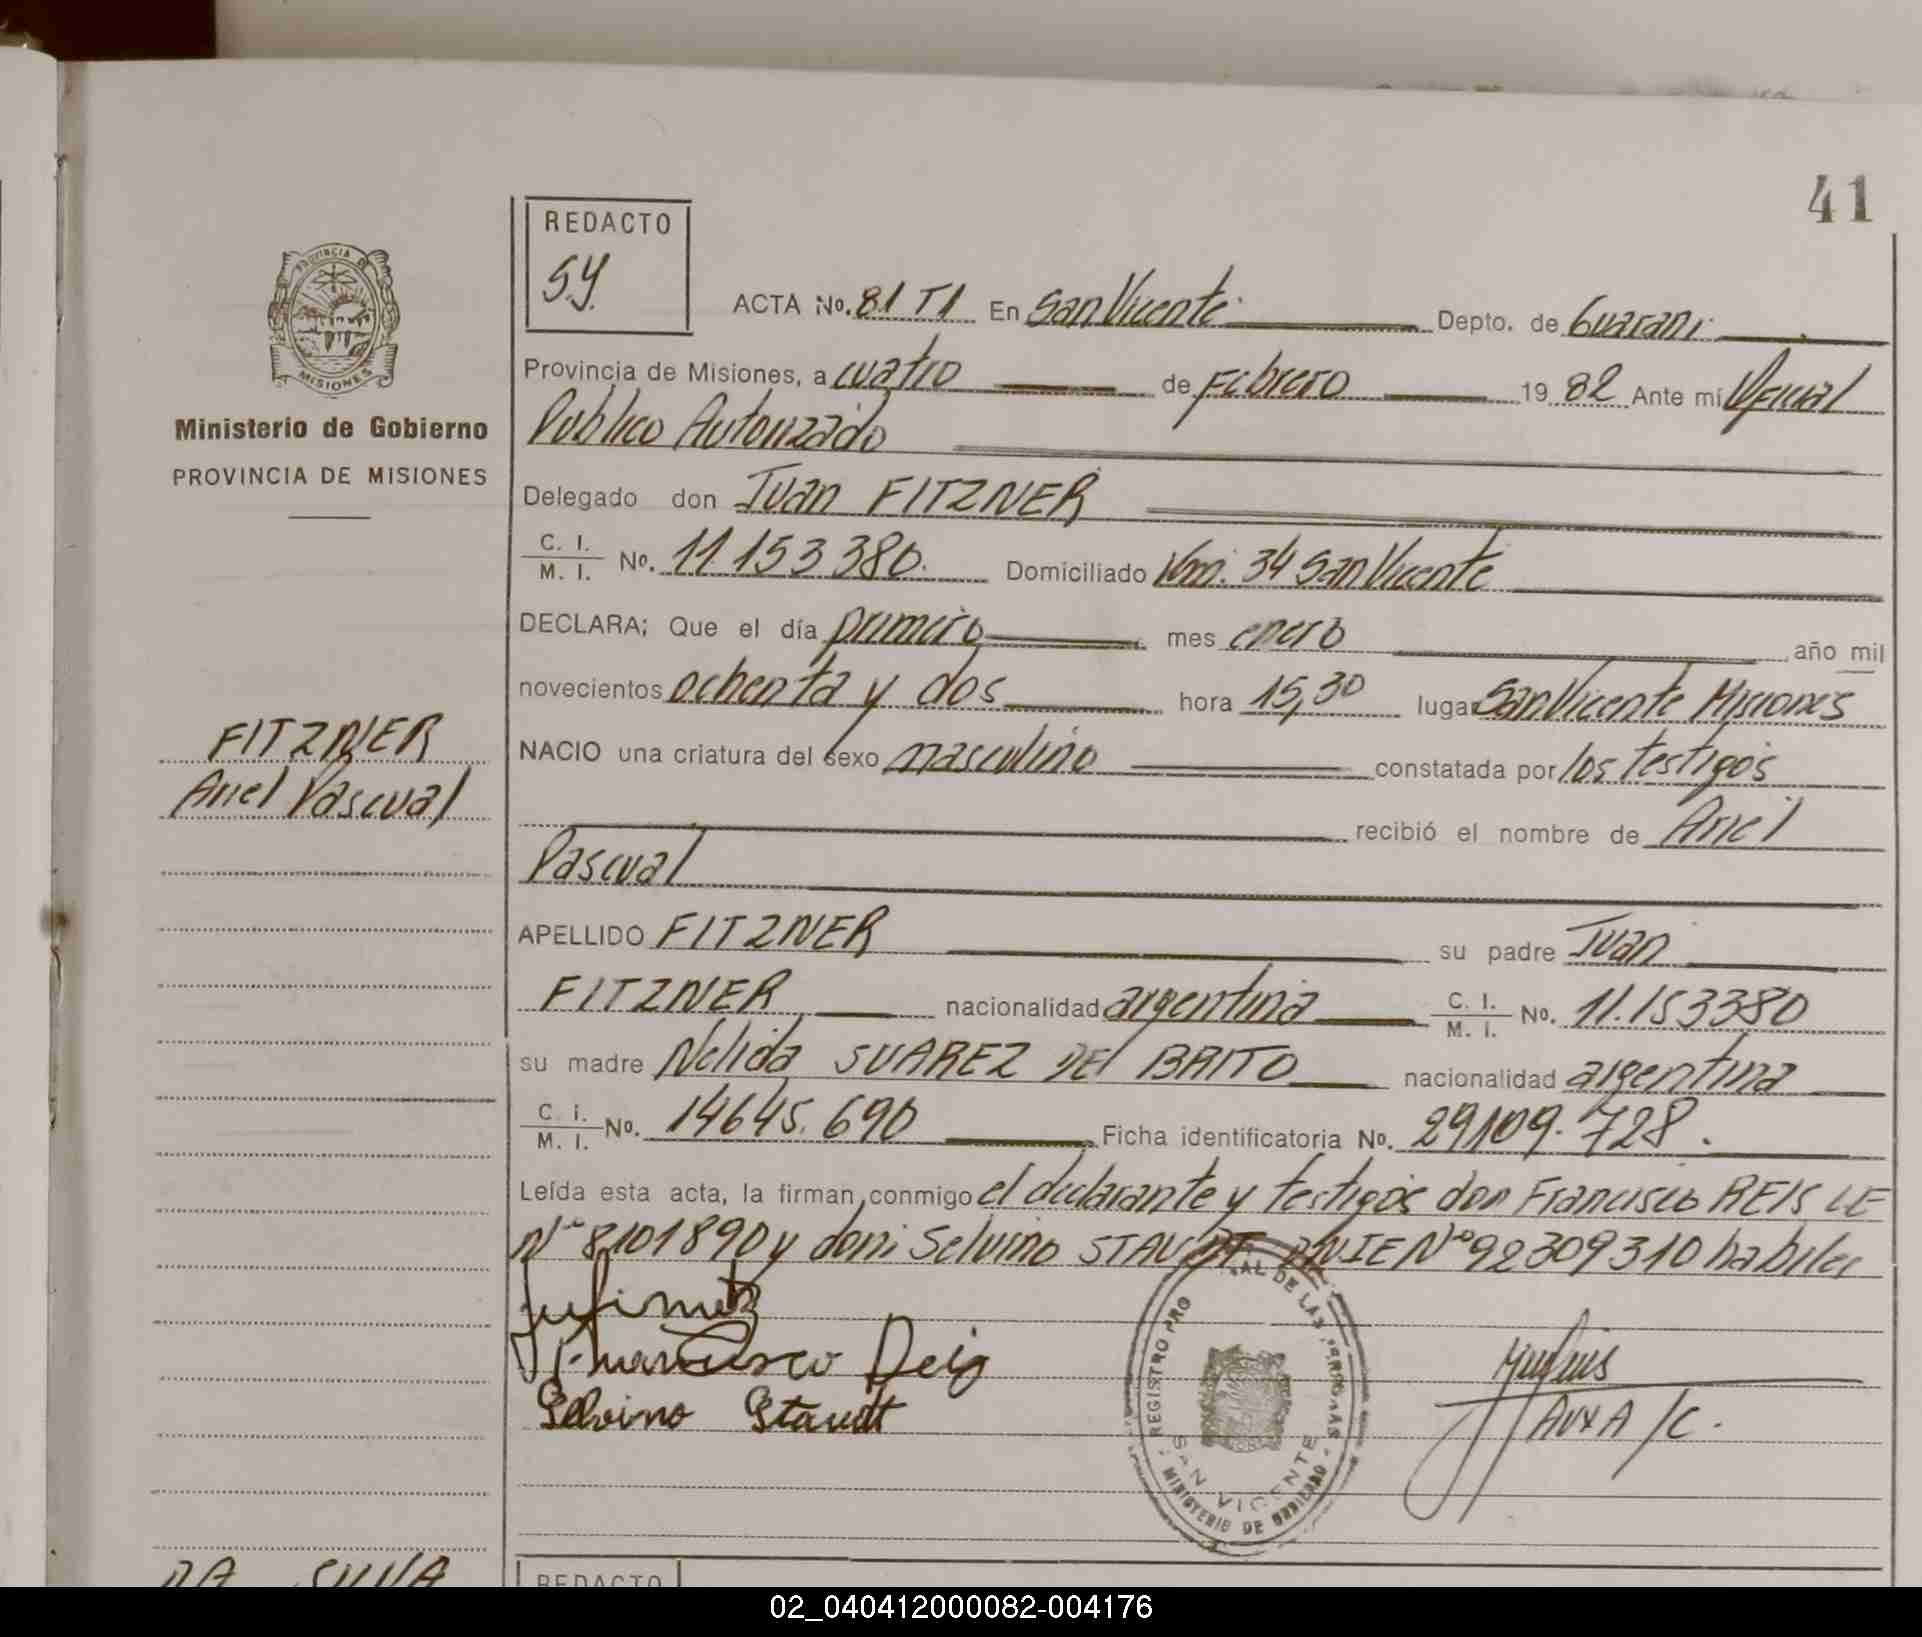 41
REDACTO
S.Y.
PROVINCIA DE
MISIONES
Ministerio de Gobierno
PROVINCIA DE MISIONES
FITZNER
Ariel Pascual
ACTA No. 81 T1 En San Vicente Depto. de Guarani
Provincia de Misiones, a cuatro de Febrero 19 82 Ante mí Oficial
Publico Autorizado
Delegado don Juan FITZNER
C. I. / M. I. No. 11.153.380. Domiciliado Km. 34 San Vicente
DECLARA; Que el día primero mes enero año mil
novecientos ochenta y dos hora 15,30 lugar San Vicente Misiones
NACIO una criatura del sexo masculino constatada por los testigos
recibió el nombre de Ariel
Pascual
APELLIDO FITZNER su padre Juan
FITZNER nacionalidad argentina C. I. / M. I. No. 11.153380
su madre Nelida SUAREZ DE BRITO nacionalidad argentina
C. i. / M. I. No. 14645.690 Ficha identificatoria No. 29109.728.
Leída esta acta, la firman conmigo el declarante y testigos don Francisco REIS LE
Nº 8101890 y don Selvino STAUDT DNIE Nº 92309310 habiles
Francisco Reis
Selvino Staudt
AUX A/C.
REGISTRO PRO AL DE LAS PERSONAS
SAN VICENTE
MINISTERIO DE GOBIERNO
DA SILVA
REDACTO
02_040412000082-004176